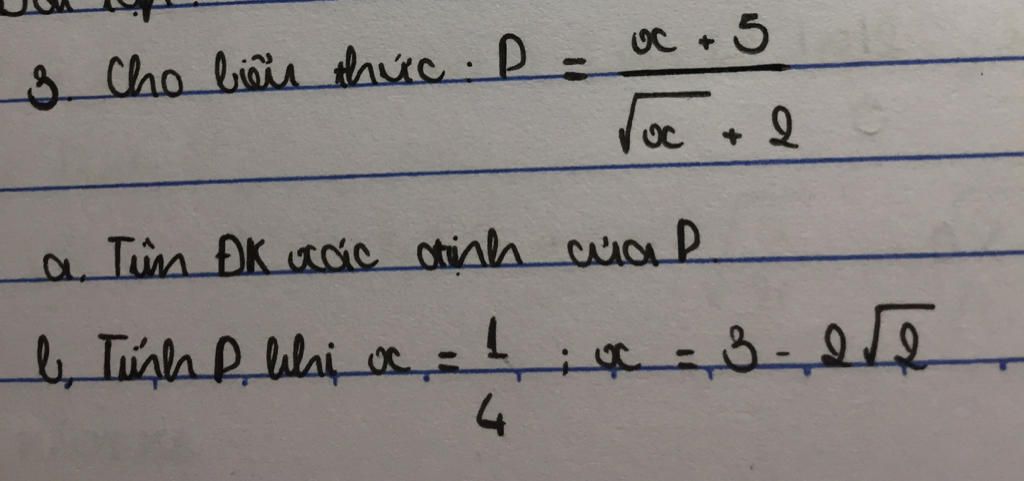 3. Cho biểu thức: P = \frac{x + 5}{\sqrt{x} + 2}
a. Tìm ĐK xác định của P.
b. Tính P khi x = \frac{1}{4} ; x = 3 - 2\sqrt{2}